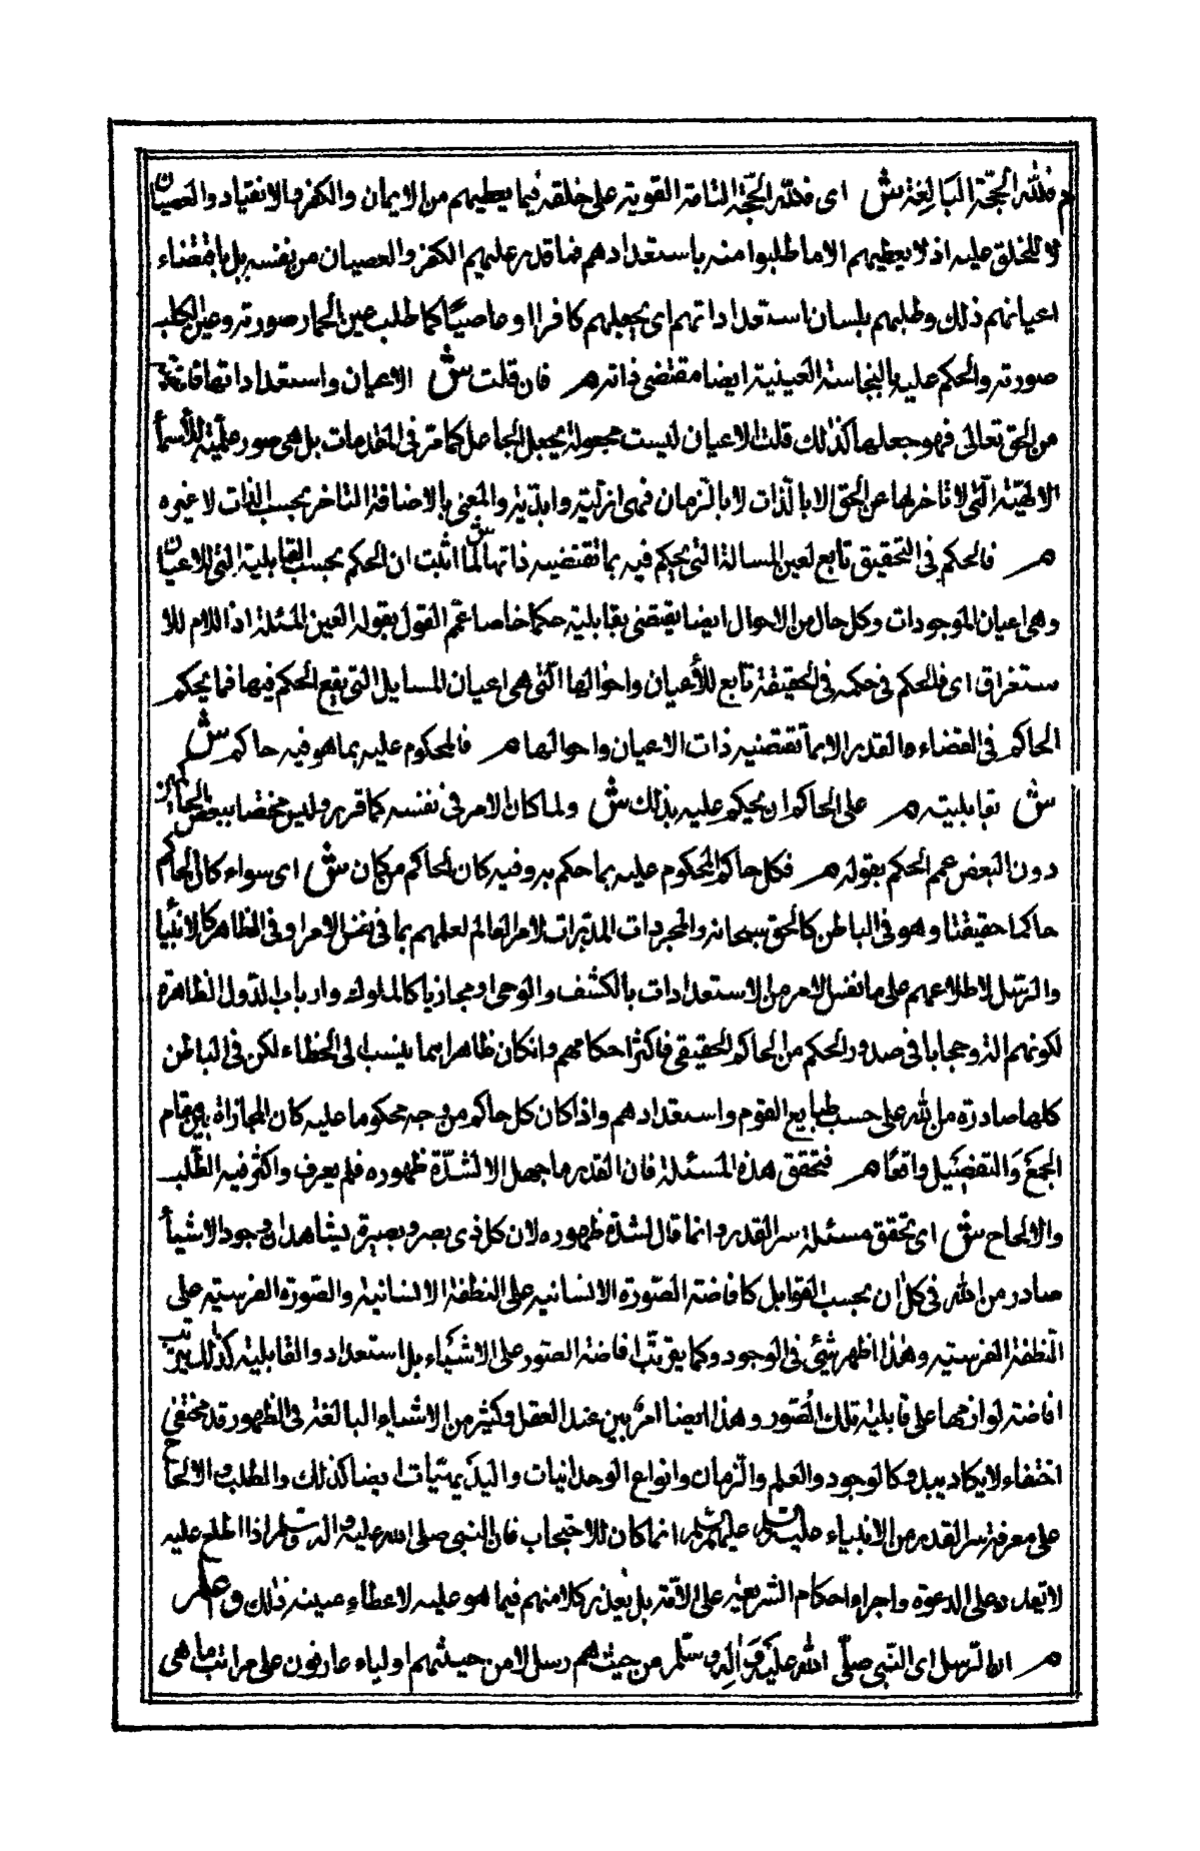 م فلله الحجّة البالغة ش اى فلله الحجّة التامة القوية على خلقه فيما يعطيهم من الايمان والكفر والانقياد والعصيان
لا للخلق عليه اذ لا يعطيهم الا ما طلبوا منه باستعدادهم فما قدر عليهم الكفر والعصيان من نفسه بل باقتضاء
اعيانهم ذلك وطلبهم بلسان استعداداتهم اى يجعلهم كافرا او عاصيًا كما طلب عين الحمار صورته وعين الكلب
صورته والحكم عليه بالنجاسة العينية ايضا مقتضى ذاته م فان قلت ش الاعيان واستعداداتها فائضة
من الحق تعالى فهو جعلها كذلك قلت الاعيان ليست مجعولة بجعل الجاعل كما مر فى المقدمات بل هى صور علميّة للأسماء
الالهيّة الّتى لا تاخر لها عن الحق الا بالذات لا بالزمان فهى ازلية وابديّة والمعنى بالاضافة التاخر بحسب الذات لا غيره
م فالحكم فى التحقيق تابع لعين المسالة التى يحكم فيه بما تقتضيه ذاتها ش لما اثبت ان الحكم بحسب القابلية التى للاعيان
وهى اعيان الموجودات وكل حال من الاحوال ايضا يقتضى بقابليته حكما خاصا عمّم القول بقوله العين المسئلة اذ اللام للا
ستغراق اى فالحكم فى حكمه فى الحقيقة تابع للأعيان واحوالها الّتى هى اعيان المسايل التى يقع الحكم فيها فما يحكم
الحاكم فى القضاء والقدر الا بما تقتضيه ذات الاعيان واحوالها م فالمحكوم عليه بما هو فيه حاكم ش
ش بقابليته م على الحاكم ان يحكم عليه بذلك ش ولما كان الامر فى نفسه كما قرره وليس مختصا ببعض الحاكمين
دون البعض عمم الحكم بقوله م فكل حاكم محكوم عليه بما حكم به وفيه كان الحاكم من كان ش اى سواء كان الحاكم
حاكما حقيقتا وهو فى الباطن كالحق سبحانه والمجردات المدبّرات لامر العالم لعلمهم بما فى نفس الامر او فى الظاهر كالانبيا
والرسل لاطلاعهم على ما نفس الامر من الاستعدادات بالكشف والوحى او مجازيا كالملوك وارباب الدّول الظاهرة
لكونهم الة وحجابا فى صدور الحكم من الحاكم الحقيقى فاكثر احكامهم وان كان ظاهرا مما ينسب الى الخطاء لكن فى الباطن
كلها صادرة من الله على حسب طبايع القوم واستعدادهم واذا كان كل حاكم من وجه محكوما عليه كان المجازاة بين مقام
الجمع والتفصيل واقعا م فتحقق هذه المسئلة فان القدر ما جهل الا لشدّة ظهوره فلم يعرف واكثر فيه الطّلب
والالحاح ش اى تحقق مسئلة سر القدر وانما قال لشدة ظهوره لان كل ذى بصر وبصيرة يشاهد ان وجود الاشيأ
صادر من الله فى كل ان بحسب القوابل كافاضة الصّورة الانسانية على النطفة الانسانية والصّورة الفرسية على
النطفة الفرسية وهذا اظهر شئ فى الوجود وكما يترتّب افاضة الصّور على الاشياء بل استعداد والقابلية كذلك يترتب
افاضة لوازمها على قابلية تلك الصّور وهذا ايضا امر بين عند العقل وكثير من الاشياء البالغة فى الظهور قد يختفى
اختفاء لا يكاد يبدو كالوجود والعلم والزمان وانواع الوجدانيات والبديهيّات ايضا كذلك والطلب والالحاح
على معرفة سر القدر من الانبياء عليهم انما كان للاحتجاب فان النبى صلى الله عليه واله وسلم اذا اطلع عليه
لا تقدر على الدعوة واجراء احكام الشريعة على الامّة بل يعذر كلا منهم فيما هو عليه لاعطاء عينه ذلك
م ان الرسل اى النّبى صلّى الله عليه وآله وسلّم من حيث هم رسل لا من حيث انهم اولياء عارفون على مراتب ما هى